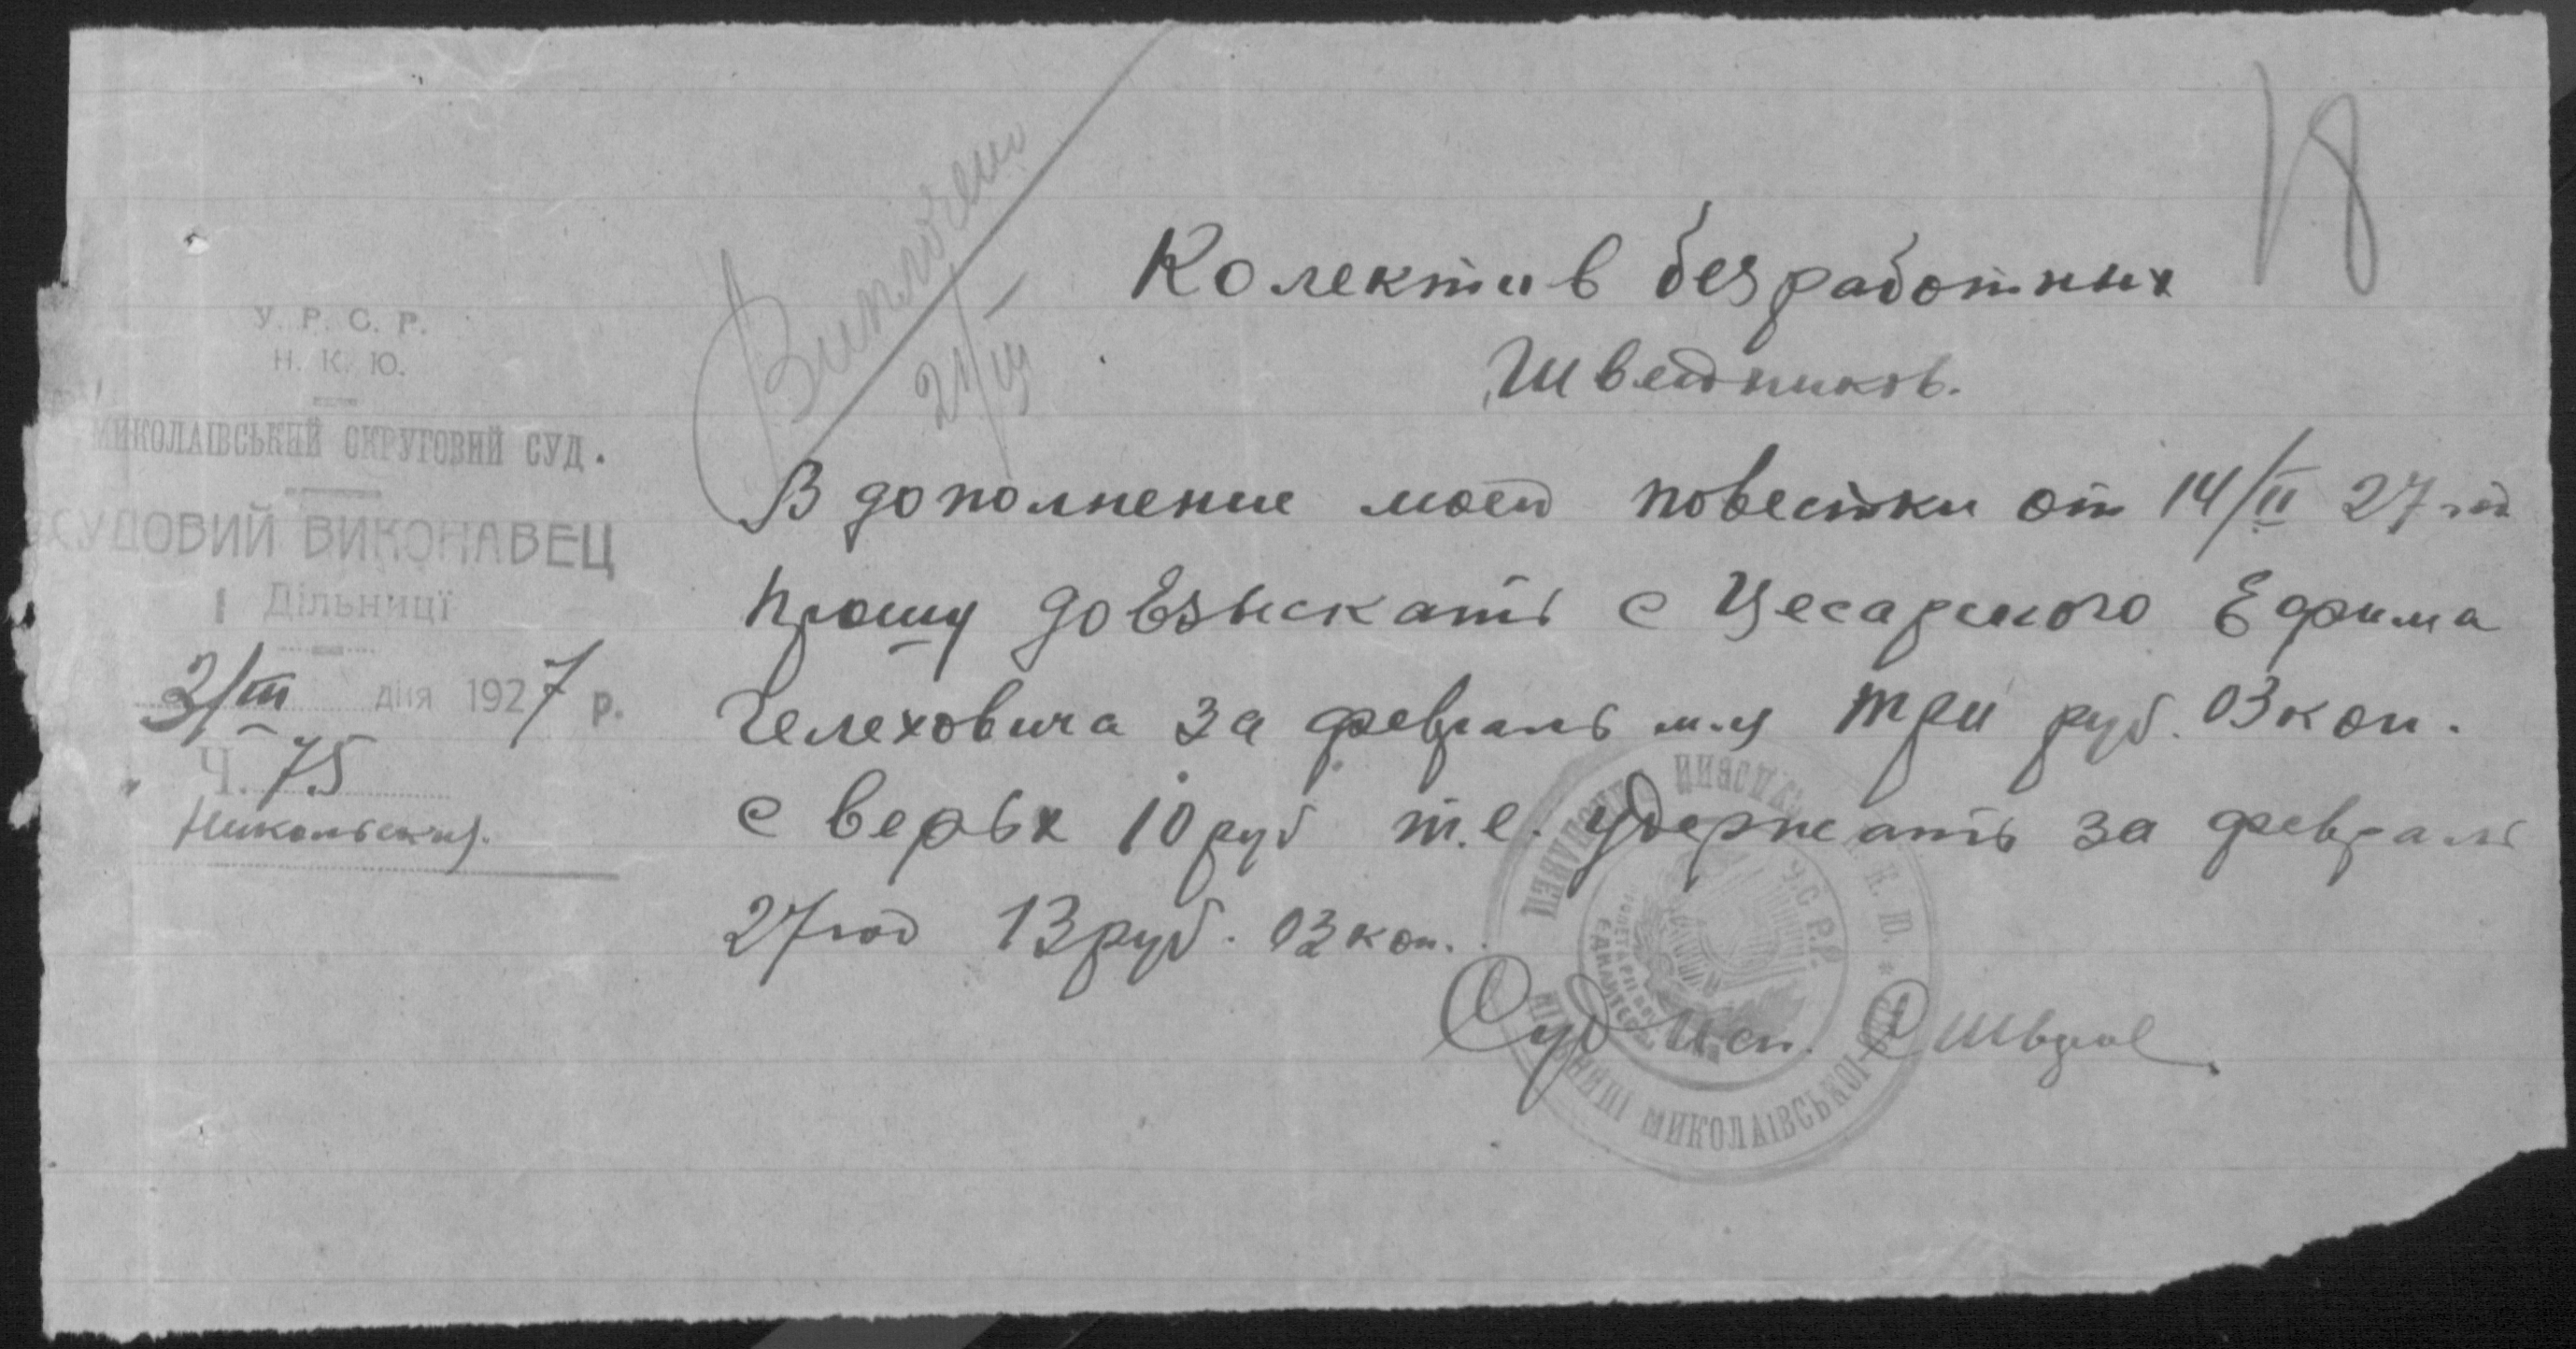 18
Виплочено
21/III
У. Р. С. Р.
Н. К. Ю.
МИКОЛАІВСЬКИЙ ОКРУГОВИЙ СУД.
СУДОВИЙ ВИКОНАВЕЦ
1 Дільниці
2/III дня 1927 р.
Ч. 75
Никольский.
Колектив безработных
Швейников.
В дополнение моей повестки от 14/II 27 год
прошу довзыскать с Цесарского Ефрима
Гелеховича за февраль м-ц три руб. 03 коп.
с верьх 10 руб т.е. удержать за февраль
27 год 13 руб. 03 коп.
Суд Исп.
У.С.Р.Р.
Н. К. Ю. *
МИКОЛАІВСЬКОІ